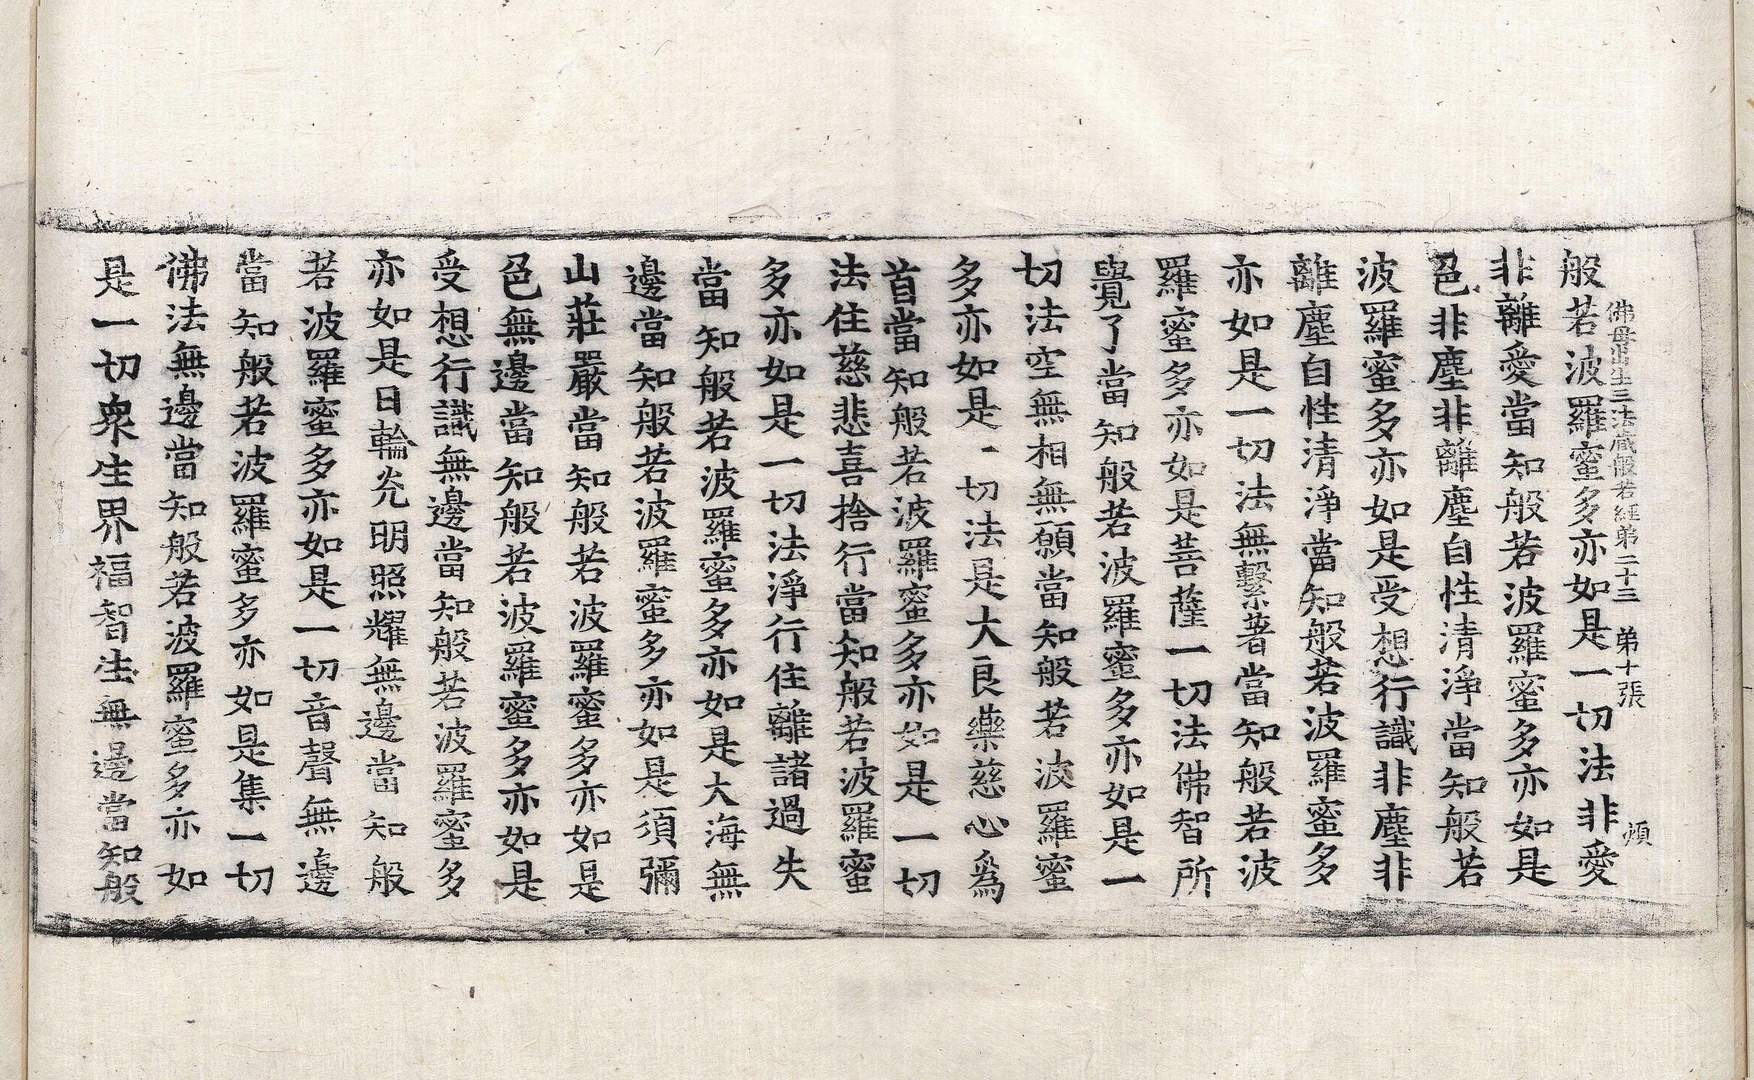 佛母出生三法藏般若經弟二十三 弟十張 煩
般若波羅蜜多亦如是一切法非愛
非離愛當知般若波羅蜜多亦如是
色非塵非離塵自性清淨當知般若
波羅蜜多亦如是受想行識非塵非
離塵自性清淨當知般若波羅蜜多
亦如是一切法無繫著當知般若波
羅蜜多亦如是菩薩一切法佛智所
覺了當知般若波羅蜜多亦如是一
切法空無相無願當知般若波羅蜜
多亦如是一切法是大良藥慈心為
首當知般若波羅蜜多亦如是一切
法住慈悲喜捨行當知般若波羅蜜
多亦如是一切法淨行住離諸過失
當知般若波羅蜜多亦如是大海無
邊當知般若波羅蜜多亦如是須彌
山莊嚴當知般若波羅蜜多亦如是
色無邊當知般若波羅蜜多亦如是
受想行識無邊當知般若波羅蜜多
亦如是日輪光明照耀無邊當知般
若波羅蜜多亦如是一切音聲無邊
當知般若波羅蜜多亦如是集一切
佛法無邊當知般若波羅蜜多亦如
是一切衆生界福智生無邊當知般